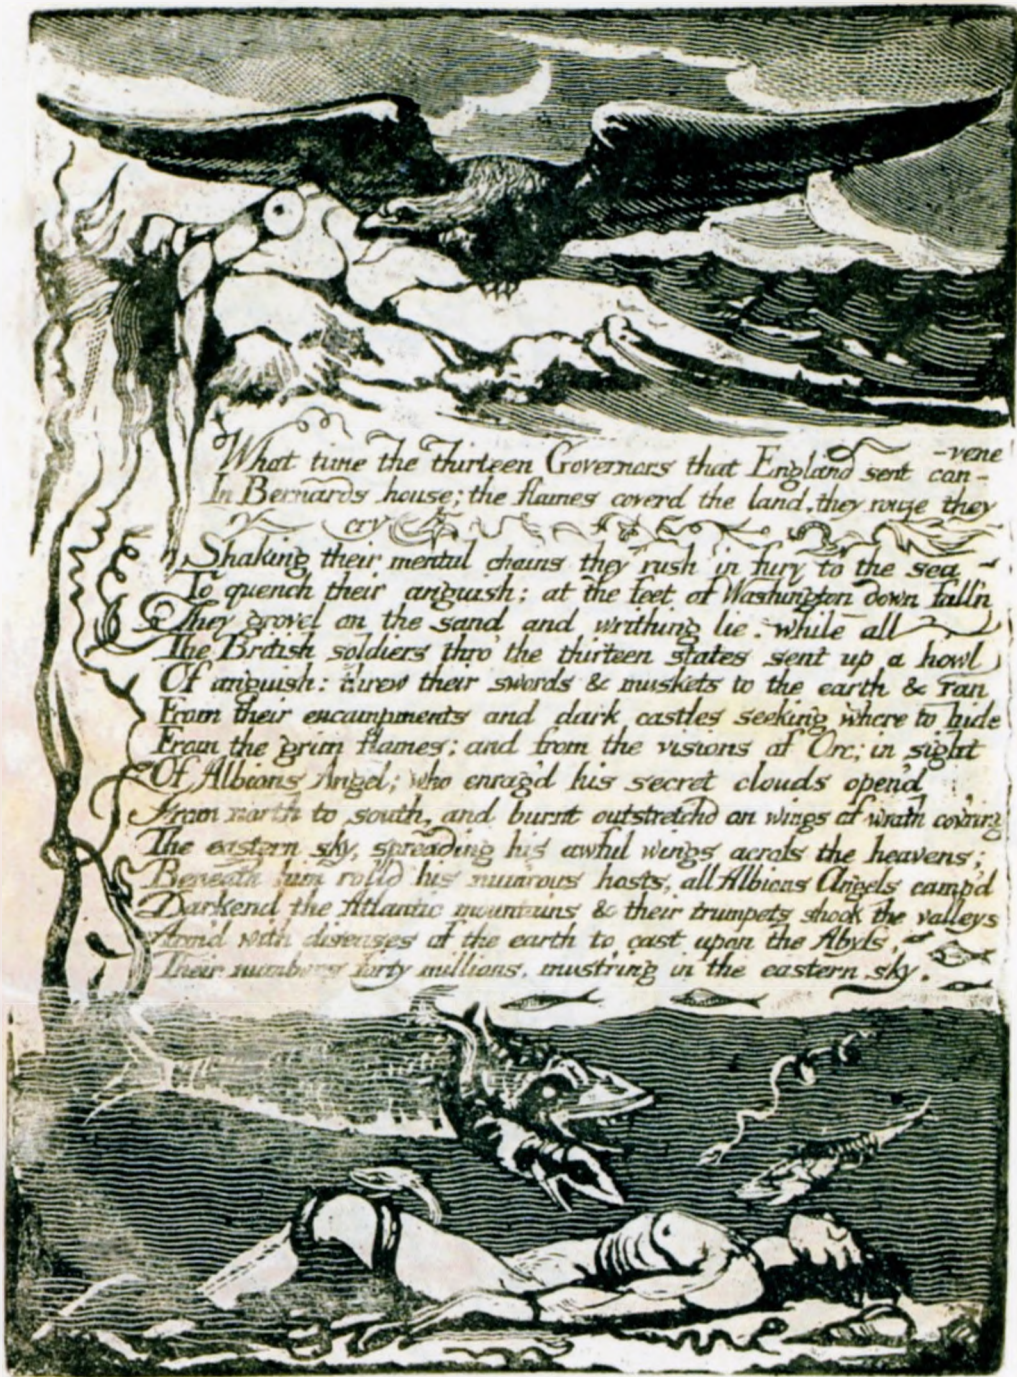 What time the thirteen Governors that England sent con-
-vene
In Bernards house; the flames coverd the land, they rouze they
cry
Shaking their mental chains they rush in fury to the sea
To quench their anguish; at the feet of Washington down fall'n
They grovel on the sand and writhing lie. while all
The British soldiers thro' the thirteen states sent up a howl
Of anguish: threw their swords & muskets to the earth & ran
From their encampments and dark castles seeking where to hide
From the grim flames; and from the visions of Orc; in sight
Of Albions Angel; who enrag'd his secret clouds open'd
From north to south, and burnt outstretchd on wings of wrath cov'ring
The eastern sky, spreading his awful wings across the heavens;
Beneath him rolld his num'rous hosts, all Albions Angels camp'd
Darkend the Atlantic mountains & their trumpets shook the valleys
Arm'd with diseases of the earth to cast upon the Abyss,
Their numbers forty millions, must'ring in the eastern sky.